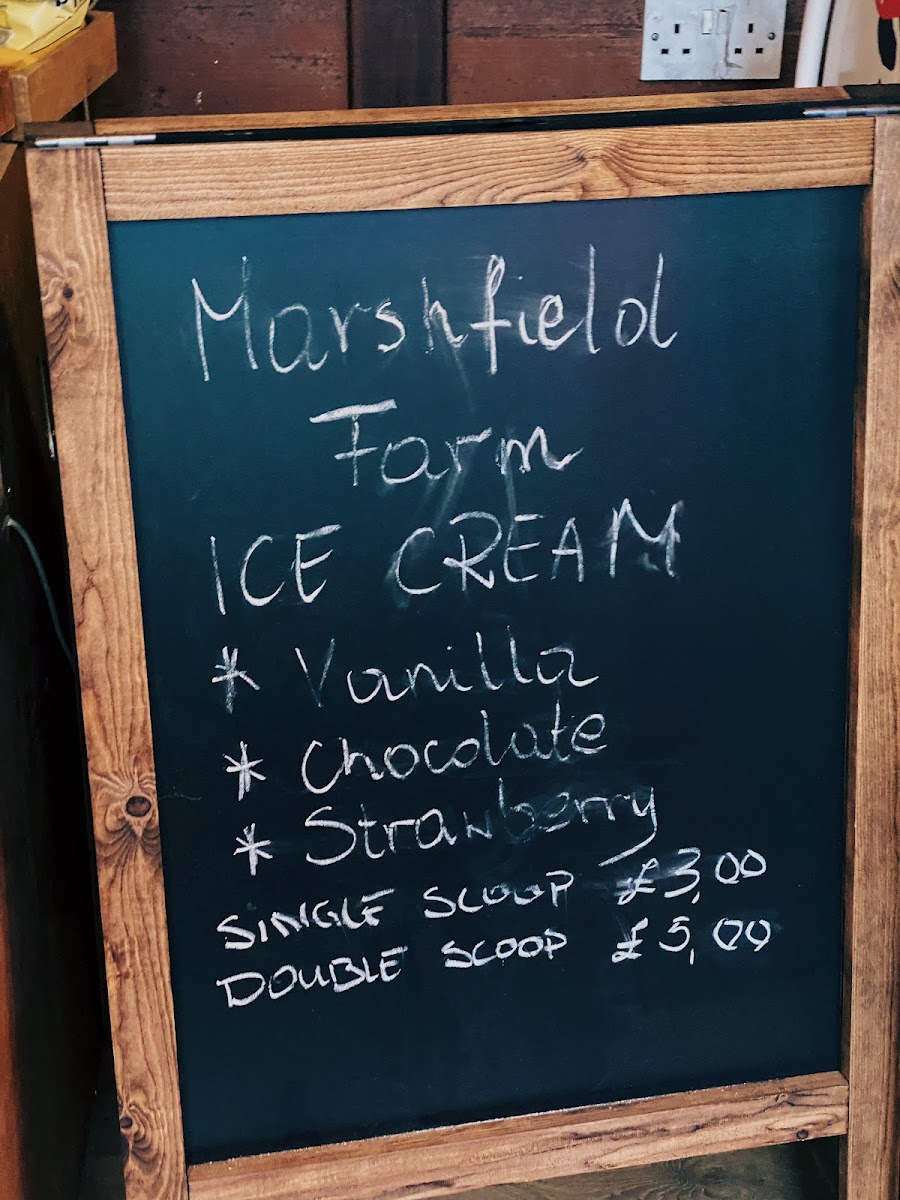 Marshfield
Farm
ICE CREAM
* Vanilla
* Chocolate
* Strawberry
SINGLE SCOOP £3,00
DOUBLE SCOOP £5,00